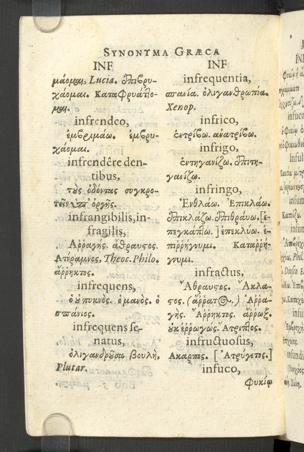 SYNONYMA GRÆCA
INF
μάομαι, Lucia. ἐπιβρυ-
χάομαι. Καταφρυάττο-
μαι.
infrendeo,
ἐμβριμάω. ἐμβρυ-
χάομαι.
infrendêre den-
tibus,
τοὺς ὀδόντας συγκρο-
τεῖν ὑπ' ὀργῆς.
infrangibilis, in-
fragilis,
Ἀρραγής. ἄθραυστος.
Ἀτέραμνος, Theoc. Philo.
ἄρρηκτος.
infrequens,
ὁ σπάνιος.
infrequens se-
natus,
ὀλιγανδροῦσα βουλή,
Plutar.
INF
infrequentia,
ἀπανία. ὀλιγανθρωπία.
Xenop.
infrico,
ἐντρίβω. ἀνατρίβω.
infrigo,
ἐντηγανίζω. ἐπιτη-
γανίζω.
infringo,
Ἐνθλάω. Ἐπικλάω.
ἐπικλάζω. ἐπιθραύω. [ἐ-
] ἐπικλύω. ἐ-
πιρρήγνυμι. Καταρρή-
γνυμι.
infractus,
Ἄθραυστος. Ἄκλα-
στος. Ἀρρα-
γής. Ἄρρηκτος. ἀρρωξ.
infructuosus,
Ἄκαρπος. [
infuco,
φυκιῶ